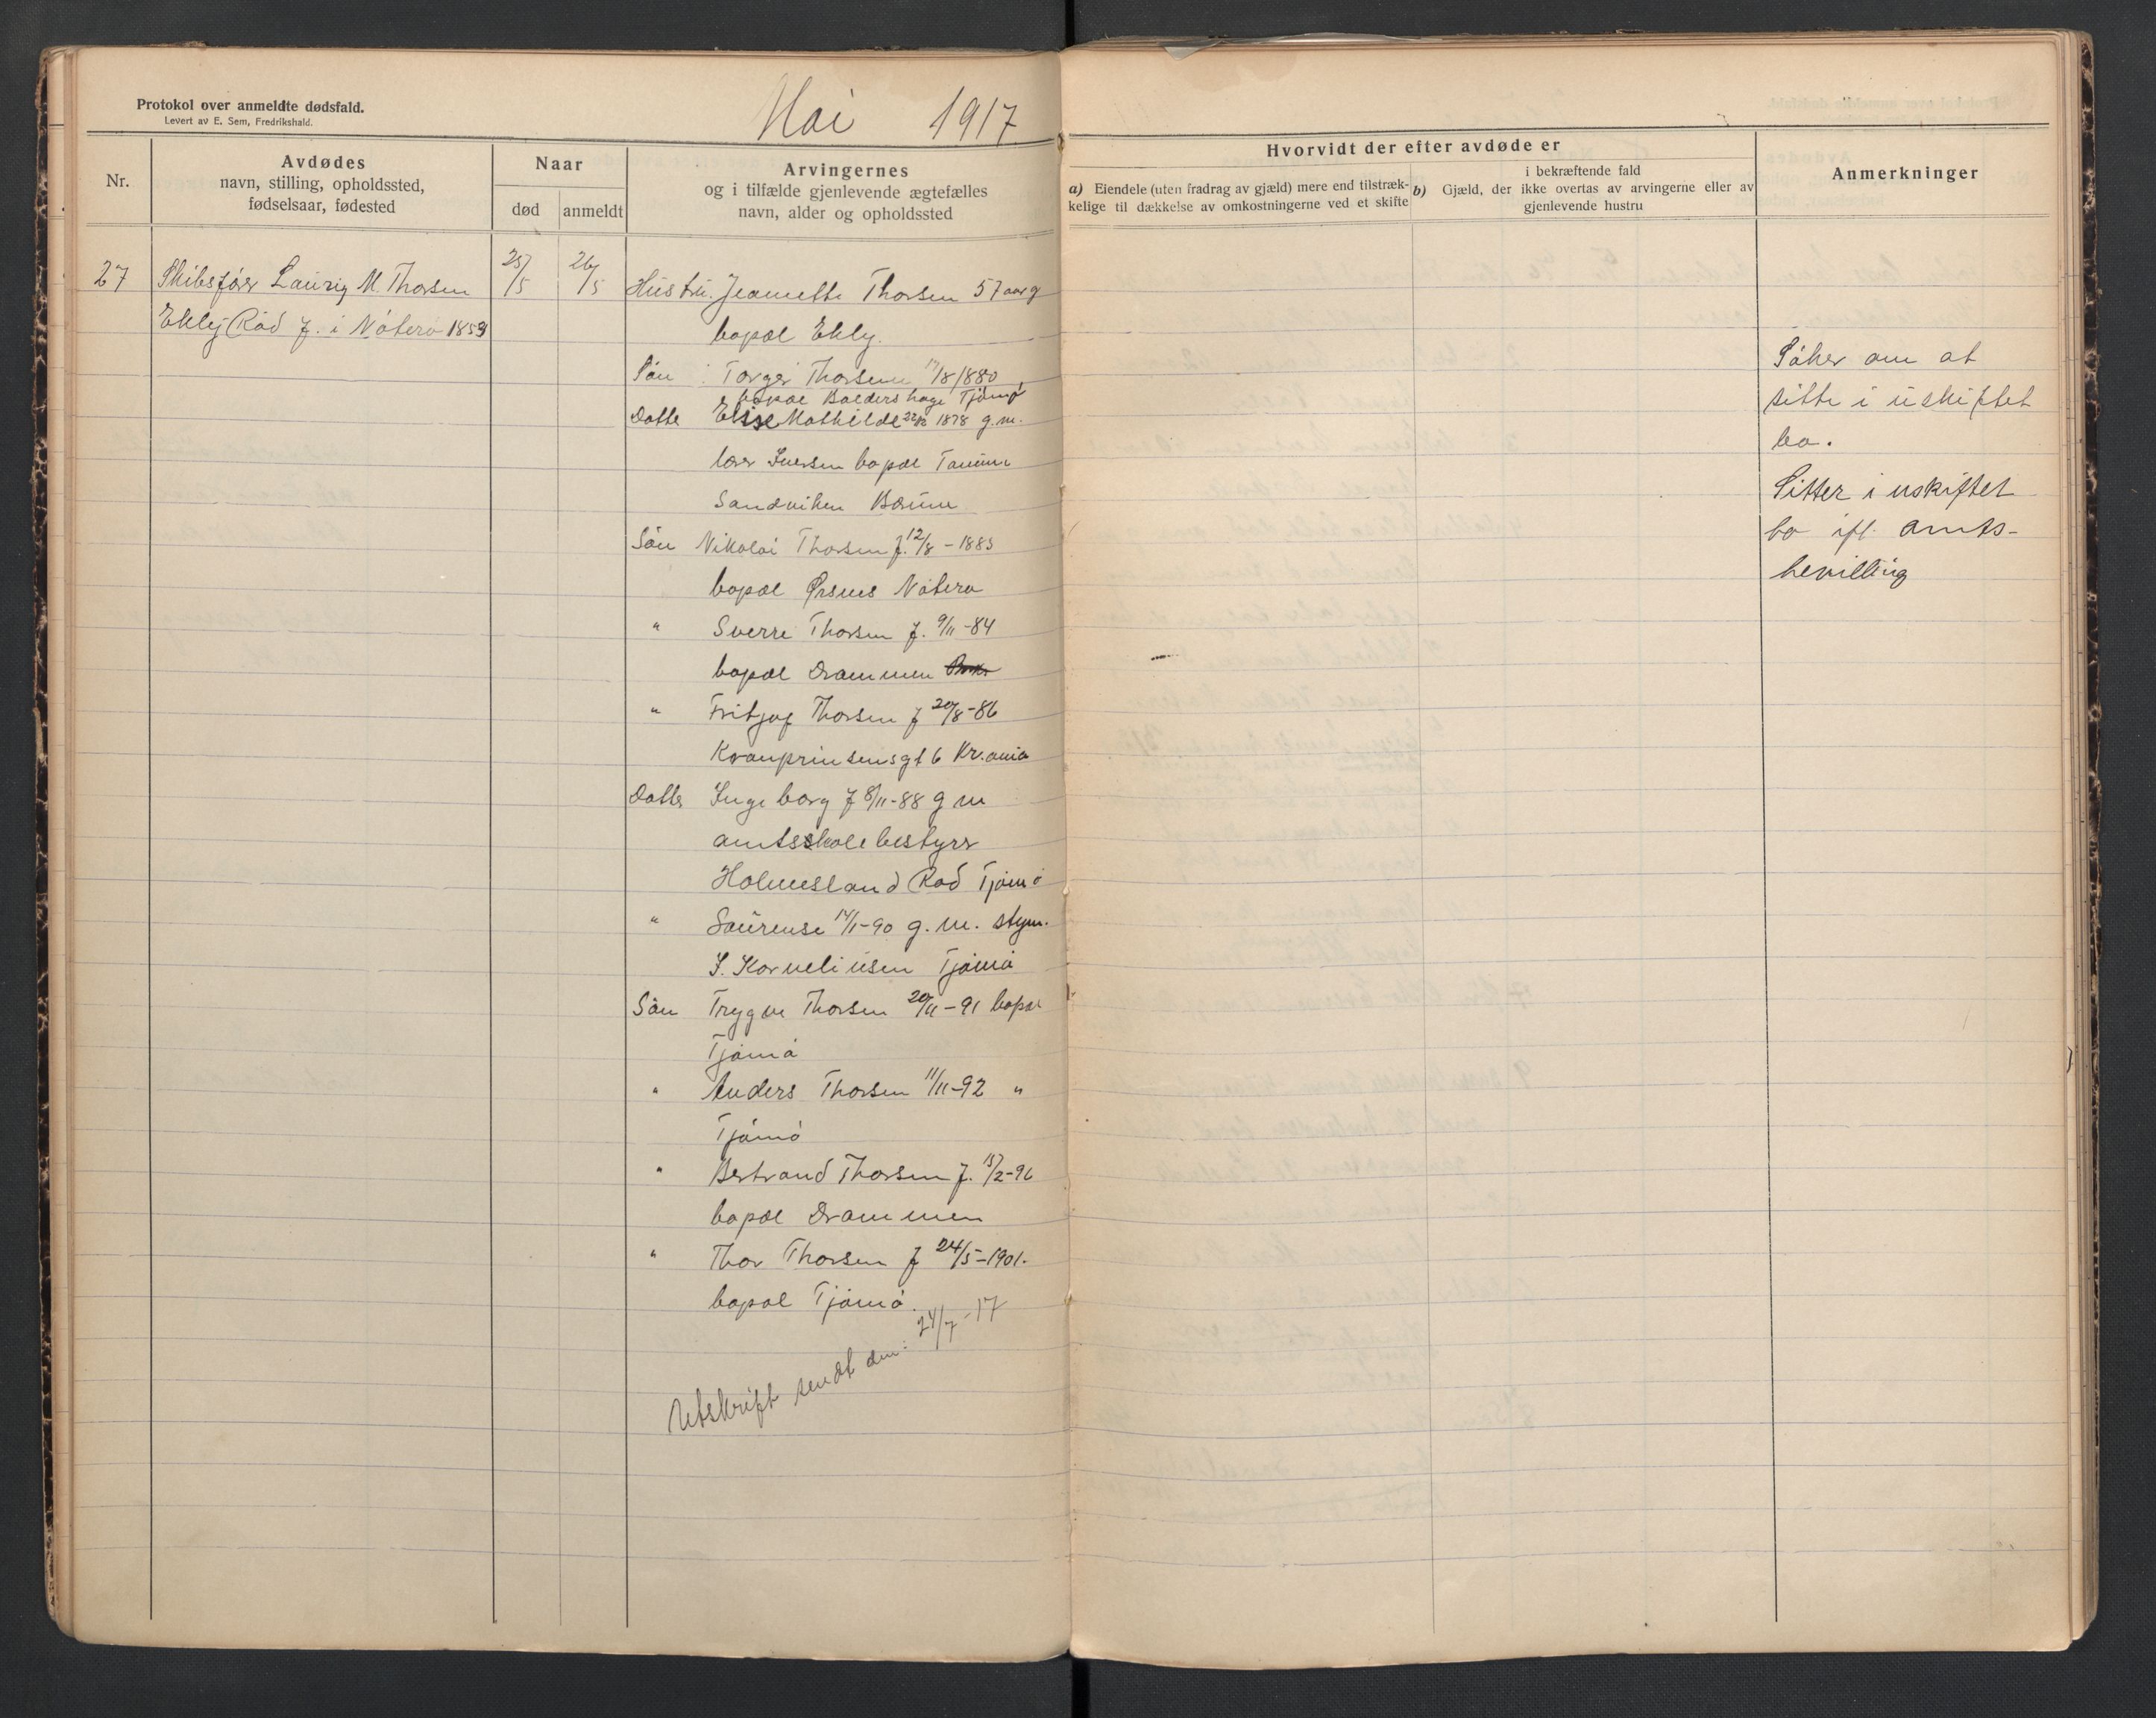 Protokol over anmeldte dødsfald.
Levert av E. Sem, Fredrikshald.
Mai 1917
Nr.
Avdødes
navn, stilling, opholdssted,
fødselsaar, fødested
Naar
død
anmeldt
Arvingernes
og i tilfælde gjenlevende ægtefælles
navn, alder og opholdssted
Hvorvidt der efter avdøde er
a) Eiendele (uten fradrag av gjæld) mere end tilstræk-
kelige til dækkelse av omkostningerne ved et skifte
i bekræftende fald
b) Gjæld, der ikke overtas av arvingerne eller av
gjenlevende hustru
Anmerkninger
27 Skibsfører Laurig M. Thorsen 25/5 26/5 Hustru. Jeanette Thorsen 57 aar g
Ekly Rød f. i Nøterø 1859
bopæl Ekly.
Søn : Torger Thorsen 17/8 1880,
bopæl Baldershage Tjømø
Datte Elise Mathilde 1878 g.m.
lærer Iversen bopæl Tanum
Sandviken Bærum
Søn Nikolai Thorsen f. 12/8 - 1883
bopæl Ørsnes Nøterø
" Sverre Thorsen f. 9/11 -84
bopæl Drammen
" Fritjof Thorsen f 20/8 -86
Kronprinsensgt 6 Kr.ania
Datter Ingeborg f 8/11-88 g m
amtsskolebestyrer
Holmesland Rød Tjømø
" Laurense 14/1-90 g. m. styrm.
J. Korneliusen Tjømø
Søn Trygve Thorsen 20/11 - 91 bopæl
Tjømø
" Anders Thorsen 11/11-92 "
Tjømø
" Bertrand Thorsen f. 15/2-96
bopæl Drammen
" Thor Thorsen f 24/5-1901.
bopæl Tjømø.
Utskrift sendt den: 24/7 - 17
Søker om at
sitte i uskiftet
bo.
Sitter i uskiftet
bo ifl. amts-
bevilling